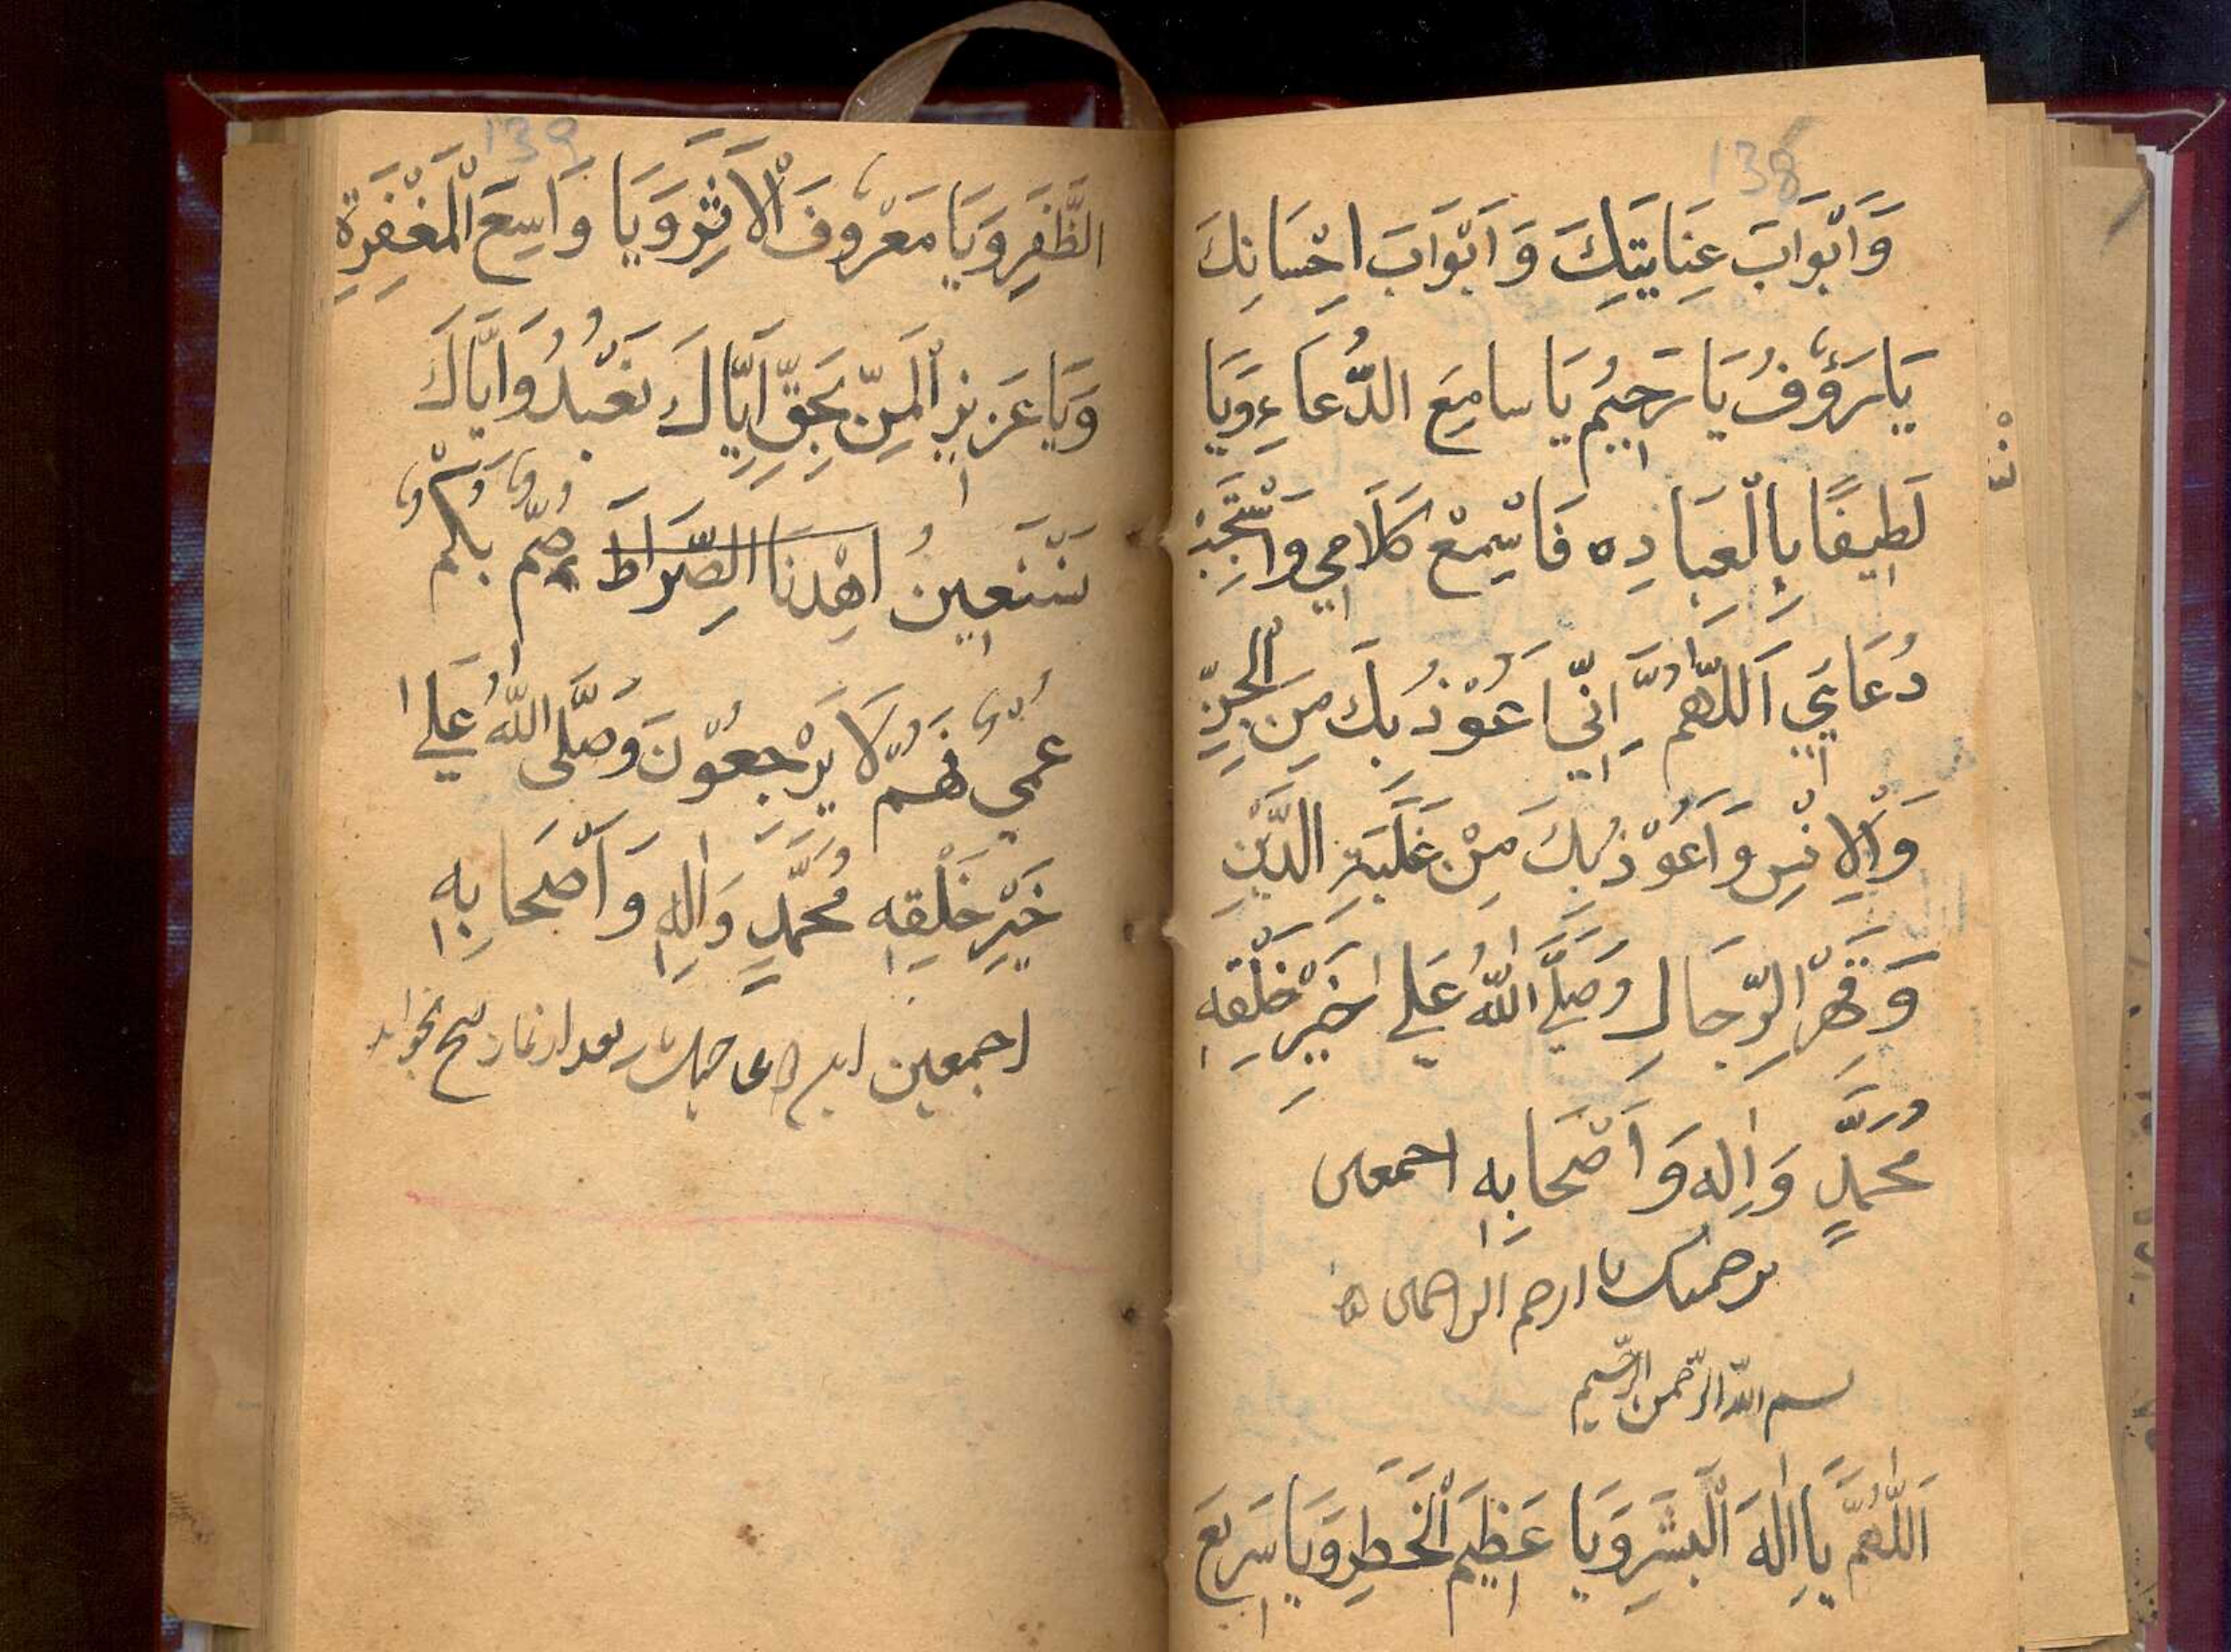 138
وَاَبْوَابَ عِنَايَتِكَ وَاَبْوَابَ اِحْسَانِكَ
يَا رَؤُفُ يَا رَحِيْمُ يَا سامِعَ الدُّعَاءِ وَيَا
لَطِيفًا بِالْعِبَادِه فَاسْمِعْ كَلَامِي وَاسْتَجِبْ
دُعَائِي اَللّٰهُمَّ اِنِّي اَعُوْذُ بِكَ مِنَ الْجِنِّ
وَالْاِنْسِ وَاَعُوْذُ بِكَ مِنْ غَلَبَةِ الدَّيْنِ
وَقَهْرِ الرِّجَالِ وَصَلَّي اللّٰهُ عَلٰي خَيْرِ خَلْقِهٖ
مُحَمَّدٍ وَاٰلِه وَاَصْحَابِهٖ اجمعين
برحمتك يا ارحم الراحمين
بسم الله الرّحمن الرّحيم
اَللّٰهُمَّ يَا اِلٰهَ الْبَشَرِ وَيَا عَظِيْمَ الْخَطَرِ وَيَا سَرِيْعَ
139
الظَّفَرِ وَيَا مَعْرُوفَ الْاَثَرِ وَيَا وَاسِعَ الْمَغْفِرَةِ
وَيَا عَزِيْزِ الْمَنِّ بِحَقِّ اِيَّاكَ نَعْبُدُ وَاِيَّاكَ
نَسْتَعِيْنُ اهْدِنَا الصِّرَاطَ صُمٌّ بُكْمٌ
عُمْيٌ فَهُمْ لَا يَرْجِعُوْنَ وَصَلَّى اللّٰهُ عَلٰي
خَيْرِ خَلْقِهٖ مُحَمَّدٍ وَاٰلِهٖ وَاَصْحَابِهٖ
اجمعين اين دعا بعد از نماز بخواند